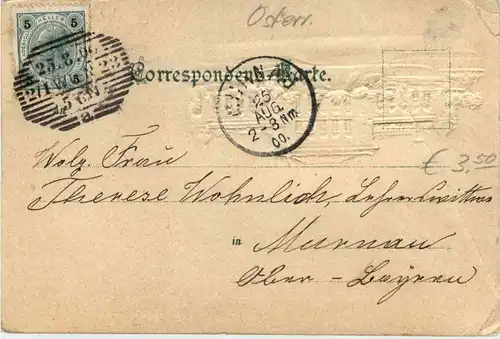 Österr.
5 5
25.8.00
Correspondenz-Karte.
MURNAU
25
AUG.
2-3 Nm.
00.
€ 3,50
Wolg. Frau
Therese Wohnlich, Lehrerswittwe
in Murnau
Ober-Bayern